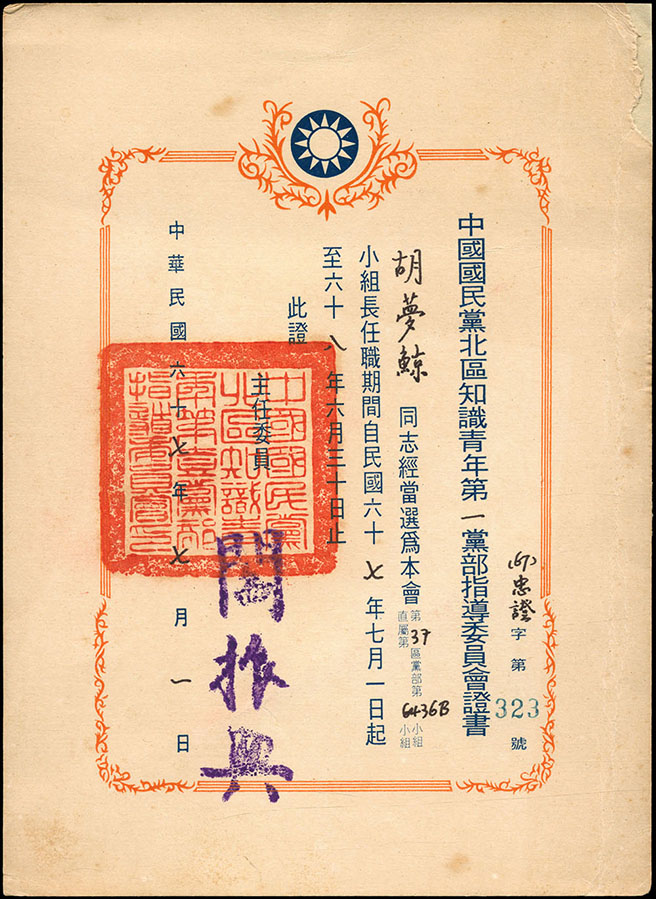 中國國民黨北區知識青年第一黨部指導委員會證書
忠證字第323號
胡夢鯨同志經當選爲本會第37區黨部第6436B小組
直屬第小組
小組長任職期間自民國六十七年七月一日起
至六十八年六月三十日止
此證
主任委員
閻振興
中華民國六十七年七月一日
中國國民黨
北區知識青
年第壹黨部
指導委員會